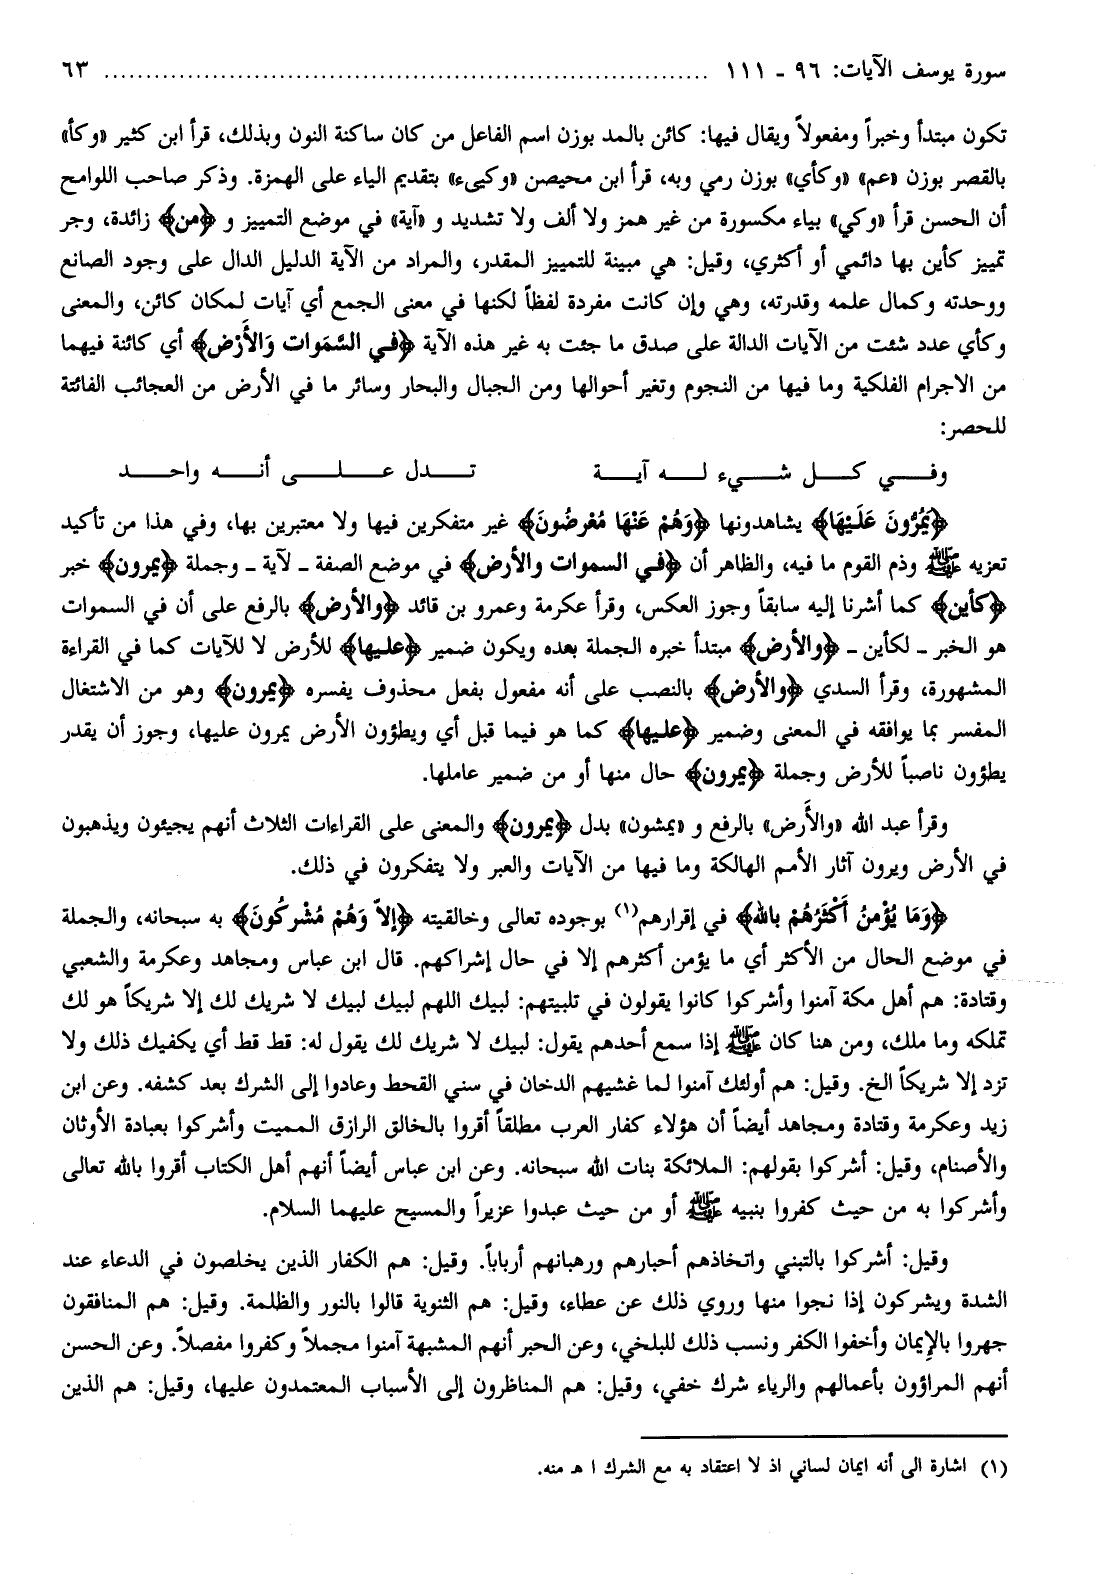 سورة يوسف الآيات: ٩٦ - ١١١ ........................................................................ ٦٣
تكون مبتدأ وخبراً ومفعولاً ويقال فيها: كائن بالمد بوزن اسم الفاعل من كان ساكنة النون وبذلك، قرأ ابن كثير «وكأ»
بالقصر بوزن «عم» «وكأي» بوزن رمي وبه، قرأ ابن محيصن «وكيىء» بتقديم الياء على الهمزة. وذكر صاحب اللوامح
أن الحسن قرأ «وكي» بياء مكسورة من غير همز ولا ألف ولا تشديد و «آية» في موضع التمييز و ﴿من﴾ زائدة، وجر
تمييز كأين بها دائمي أو أكثري، وقيل: هي مبينة للتمييز المقدر، والمراد من الآية الدليل الدال على وجود الصانع
ووحدته وكمال علمه وقدرته، وهي وإن كانت مفردة لفظاً لكنها في معنى الجمع أي آيات لمكان كائن، والمعنى
وكأي عدد شئت من الآيات الدالة على صدق ما جئت به غير هذه الآية ﴿في السَّمَوات وَالأَرْض﴾ أي كائنة فيهما
من الاجرام الفلكية وما فيها من النجوم وتغير أحوالها ومن الجبال والبحار وسائر ما في الأرض من العجائب الفائتة
للحصر:
وفـــي كـــل شـــيء لـــه آيـــة تـــدل عـــلـــى أنـــه واحـــد
﴿يَمُرُّونَ عَلَيْهَا﴾ يشاهدونها ﴿وَهُمْ عَنْهَا مُعْرضُونَ﴾ غير متفكرين فيها ولا معتبرين بها، وفي هذا من تأكيد
تعزيه ﷺ وذم القوم ما فيه، والظاهر أن ﴿في السموات والأرض﴾ في موضع الصفة - لآية - وجملة ﴿يمرون﴾ خبر
﴿كأين﴾ كما أشرنا إليه سابقاً وجوز العكس، وقرأ عكرمة وعمرو بن قائد ﴿والأرض﴾ بالرفع على أن في السموات
هو الخبر - لكأين - ﴿والأرض﴾ مبتدأ خبره الجملة بعده ويكون ضمير ﴿عليها﴾ للأرض لا للآيات كما في القراءة
المشهورة، وقرأ السدي ﴿والأرض﴾ بالنصب على أنه مفعول بفعل محذوف يفسره ﴿يمرون﴾ وهو من الاشتغال
المفسر بما يوافقه في المعنى وضمير ﴿عليها﴾ كما هو فيما قبل أي ويطؤون الأرض يمرون عليها، وجوز أن يقدر
يطؤون ناصباً للأرض وجملة ﴿يمرون﴾ حال منها أو من ضمير عاملها.
وقرأ عبد الله «والأَرض» بالرفع و «يمشون» بدل ﴿يمرون﴾ والمعنى على القراءات الثلاث أنهم يجيئون ويذهبون
في الأرض ويرون آثار الأمم الهالكة وما فيها من الآيات والعبر ولا يتفكرون في ذلك.
﴿وَمَا يُؤْمنُ أَكْثَرُهُمْ بالله﴾ في إقرارهم(١) بوجوده تعالى وخالقيته ﴿إلاّ وَهُمْ مُشْركُونَ﴾ به سبحانه، والجملة
في موضع الحال من الأكثر أي ما يؤمن أكثرهم إلا في حال إشراكهم. قال ابن عباس ومجاهد وعكرمة والشعبي
وقتادة: هم أهل مكة آمنوا وأشركوا كانوا يقولون في تلبيتهم: لبيك اللهم لبيك لبيك لا شريك لك إلا شريكاً هو لك
تملكه وما ملك، ومن هنا كان ﷺ إذا سمع أحدهم يقول: لبيك لا شريك لك يقول له: قط قط أي يكفيك ذلك ولا
تزد إلا شريكاً الخ. وقيل: هم أولئك آمنوا لما غشيهم الدخان في سني القحط وعادوا إلى الشرك بعد كشفه. وعن ابن
زيد وعكرمة وقتادة ومجاهد أيضاً أن هؤلاء كفار العرب مطلقاً أقروا بالخالق الرازق المميت وأشركوا بعبادة الأوثان
والأصنام، وقيل: أشركوا بقولهم: الملائكة بنات الله سبحانه. وعن ابن عباس أيضاً أنهم أهل الكتاب أقروا بالله تعالى
وأشركوا به من حيث كفروا بنبيه ﷺ أو من حيث عبدوا عزيراً والمسيح عليهما السلام.
وقيل: أشركوا بالتبني واتخاذهم أحبارهم ورهبانهم أرباباً. وقيل: هم الكفار الذين يخلصون في الدعاء عند
الشدة ويشركون إذا نجوا منها وروي ذلك عن عطاء، وقيل: هم الثنوية قالوا بالنور والظلمة. وقيل: هم المنافقون
جهروا بالإيمان وأخفوا الكفر ونسب ذلك للبلخي، وعن الحبر أنهم المشبهة آمنوا مجملاً وكفروا مفصلاً. وعن الحسن
أنهم المراؤون بأعمالهم والرياء شرك خفي، وقيل: هم المناظرون إلى الأسباب المعتمدون عليها، وقيل: هم الذين
(١) اشارة الى أنه ايمان لساني اذ لا اعتقاد به مع الشرك ا هـ منه.